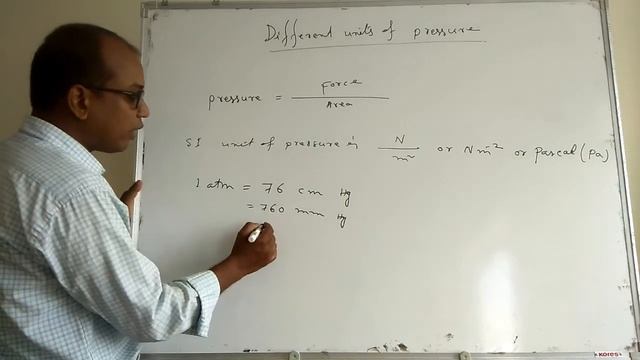 Different units of pressure
pressure = Force / Area
SI unit of pressure is N / m² or N m⁻² or Pascal (Pa)
1 atm = 76 cm Hg
= 760 mm Hg
KORES